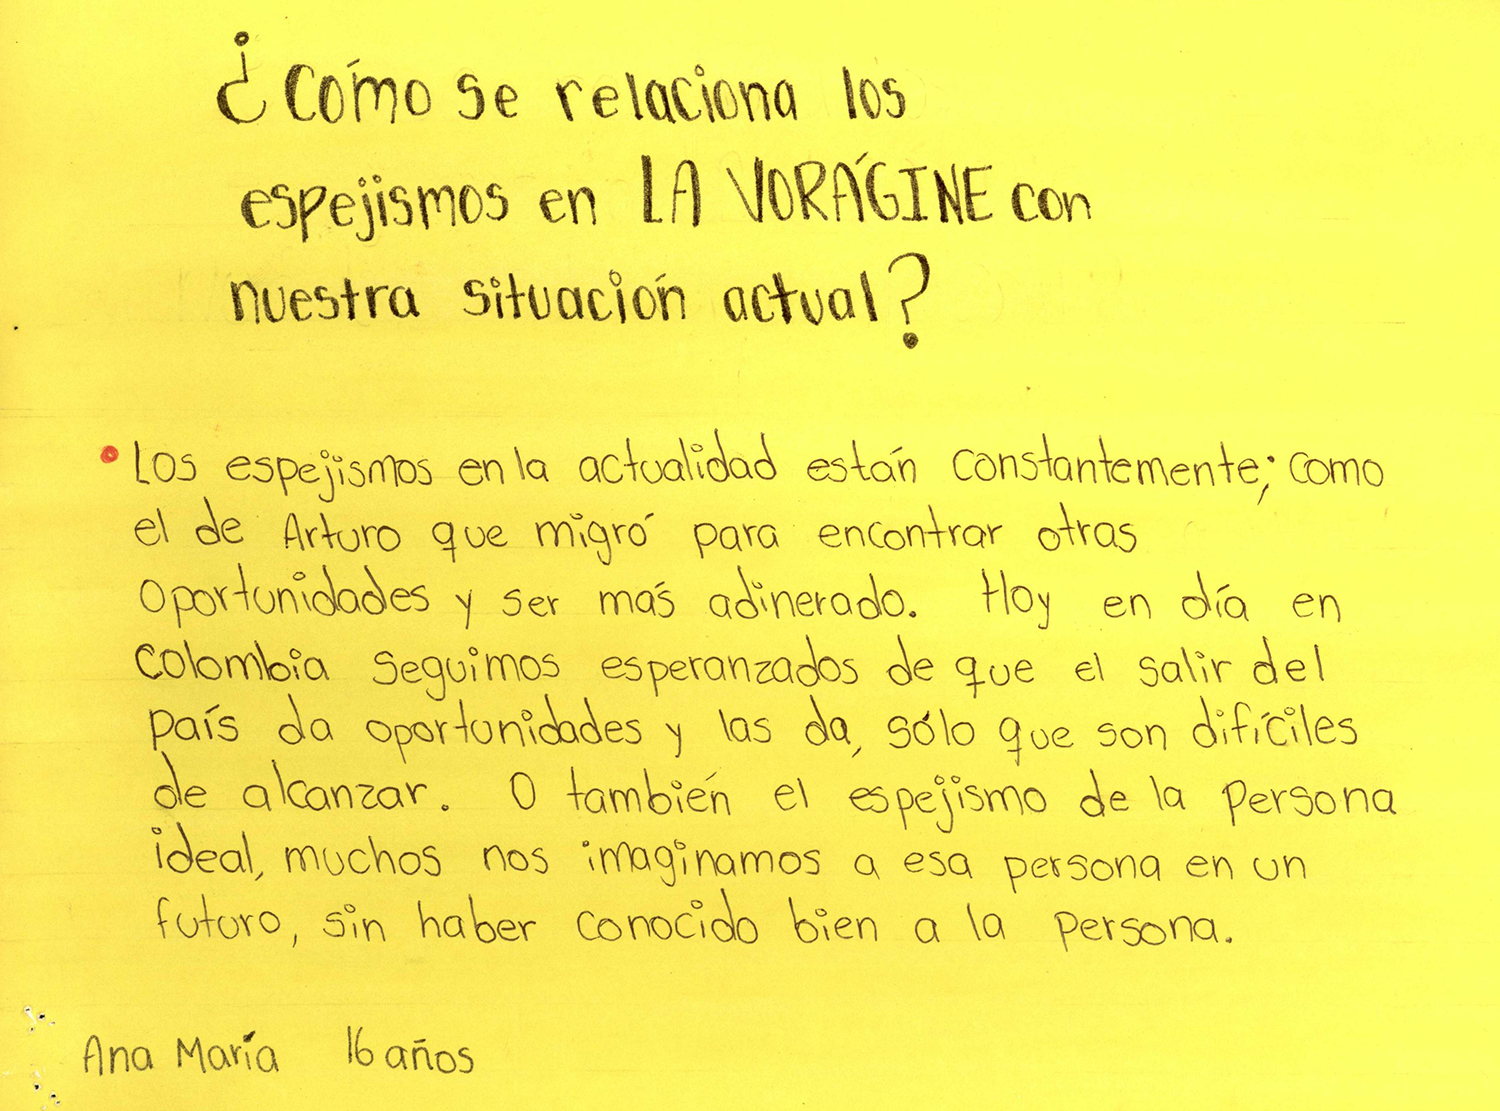 ¿Cómo se relaciona los
espejismos en LA VORÁGINE con
nuestra situación actual?
• Los espejismos en la actualidad están constantemente; como
el de Arturo que migró para encontrar otras
oportunidades y ser más adinerado. Hoy en día en
Colombia seguimos esperanzados de que el salir del
país da oportunidades y las da, sólo que son difíciles
de alcanzar. O también el espejismo de la persona
ideal, muchos nos imaginamos a esa persona en un
futuro, sin haber conocido bien a la persona.
Ana María 16 años